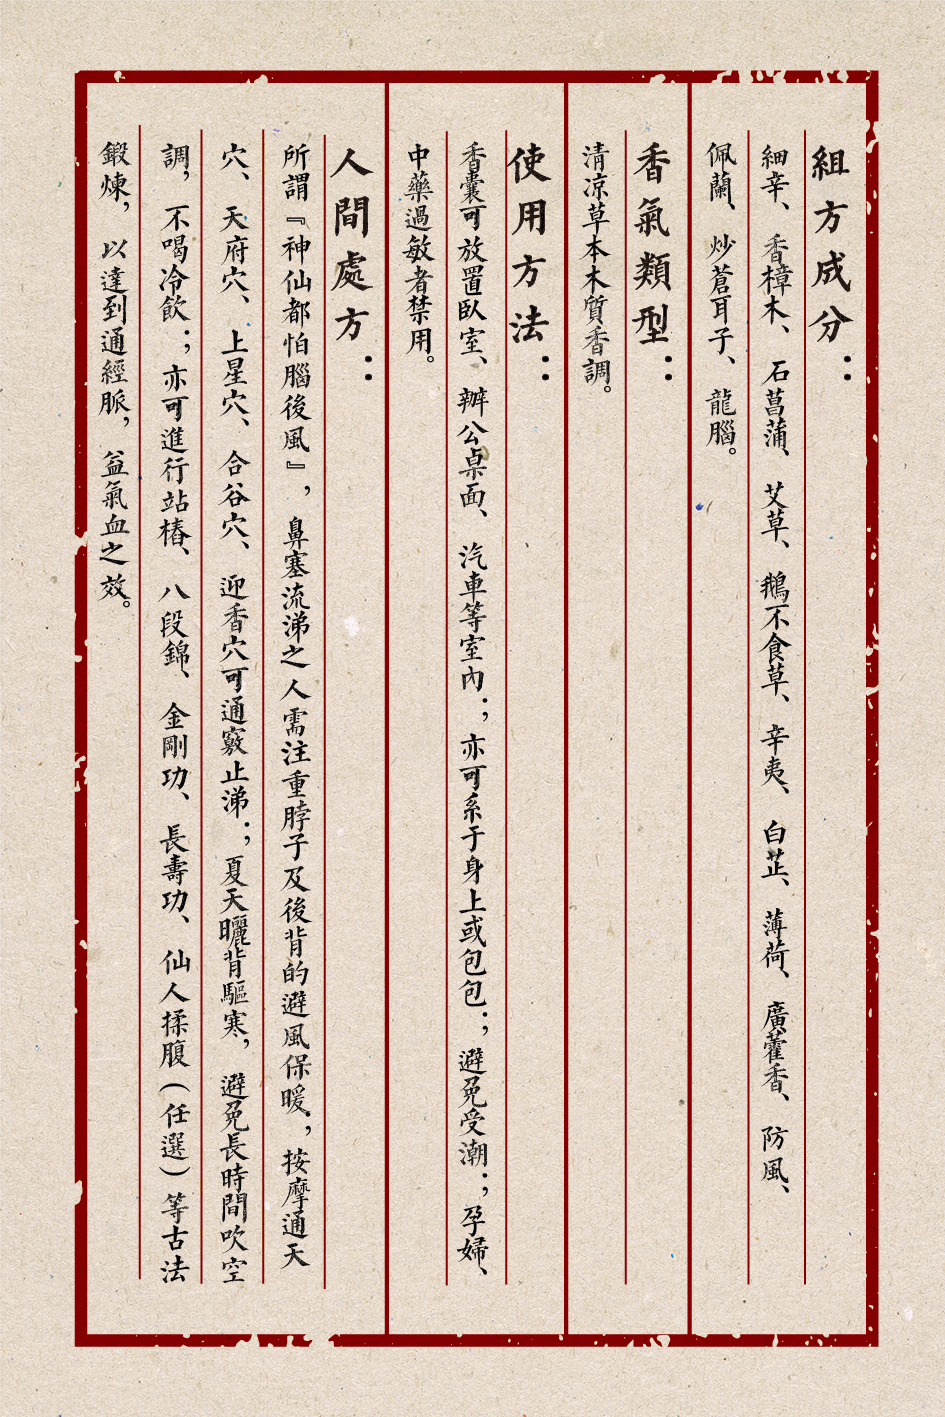 組方成分：
細辛、香樟木、石菖蒲、艾草、鵝不食草、辛夷、白芷、薄荷、廣藿香、防風、
佩蘭、炒蒼耳子、龍腦。
香氣類型：
清涼草本木質香調。
使用方法：
香囊可放置臥室、辦公桌面、汽車等室內；亦可系于身上或包包；避免受潮；孕婦、
中藥過敏者禁用。
人間處方：
所謂『神仙都怕腦後風』，鼻塞流涕之人需注重脖子及後背的避風保暖，按摩通天
穴、天府穴、上星穴、合谷穴、迎香穴可通竅止涕；夏天曬背驅寒，避免長時間吹空
調，不喝冷飲；亦可進行站樁、八段錦、金剛功、長壽功、仙人揉腹（任選）等古法
鍛煉，以達到通經脈，益氣血之效。